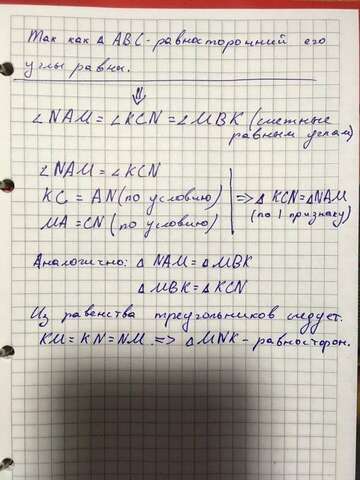 Так как △ ABC - равносторонний его
углы равны.
⇓
∠NAM = ∠KCN = ∠MBK (смежные
равным углам)
∠NAM = ∠KCN
KC = AN (по условию)
MA = CN (по условию)
=> △ KCN = △NAM
(по 1 признаку)
Аналогично: △ NAM = △ MBK
△ MBK = △ KCN
Из равенства треугольников следует.
KM = KN = NM. => △ MNK - равносторон.